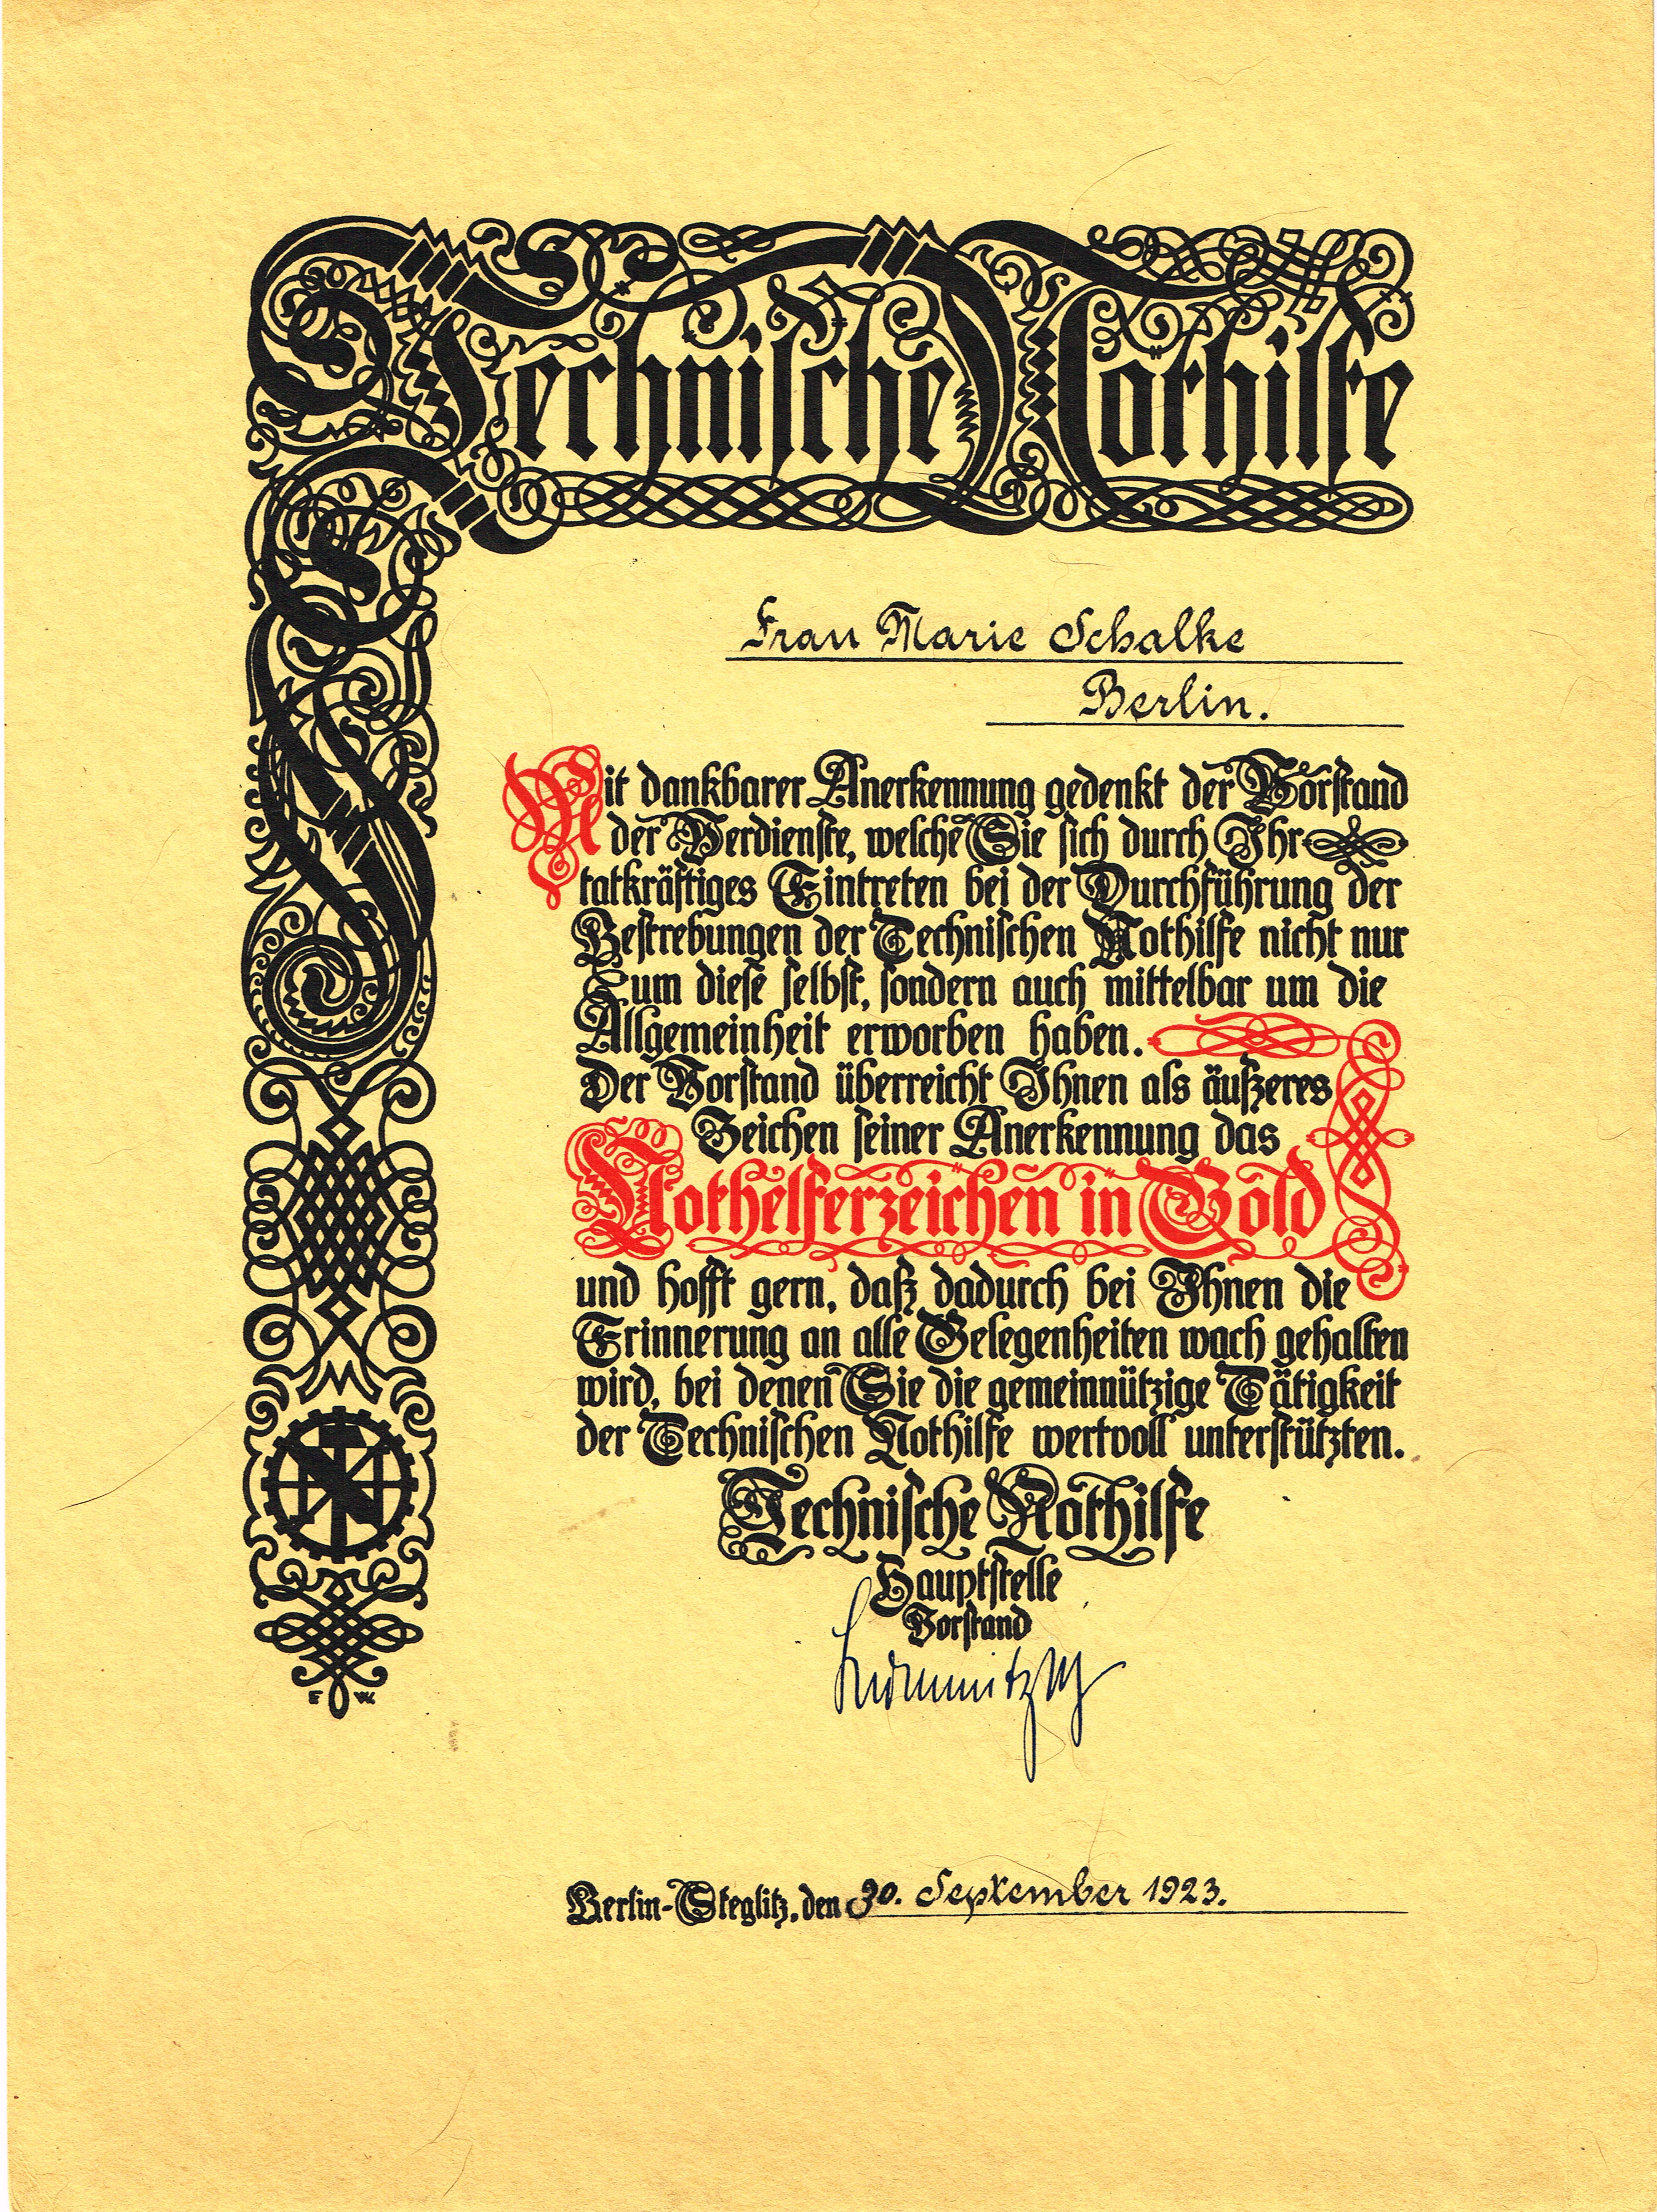 Technische Nothilfe
Frau Marie Schalke
Berlin.
Mit dankbarer Anerkennung gedenkt der Vorstand
der Verdienste, welche Sie sich durch Ihr
tatkräftiges Eintreten bei der Durchführung der
Bestrebungen der Technischen Nothilfe nicht nur
um diese selbst, sondern auch mittelbar um die
Allgemeinheit erworben haben.
Der Vorstand überreicht Ihnen als äußeres
Zeichen seiner Anerkennung das
Nothelferzeichen in Gold
und hofft gern, daß dadurch bei Ihnen die
Erinnerung an alle Gelegenheiten wach gehalten
wird, bei denen Sie die gemeinnützige Tätigkeit
der Technischen Nothilfe wertvoll unterstützten.
Technische Nothilfe
Hauptstelle
Vorstand
Berlin-Steglitz, den 30. September 1923.
E W